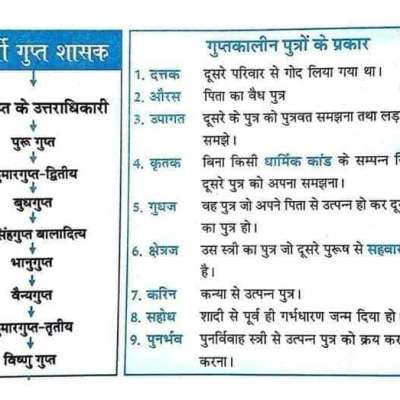 गुप्त शासक
के उत्तराधिकारी
पुरू गुप्त
कुमारगुप्त-द्वितीय
बुधगुप्त
बालादित्य
भानुगुप्त
वैन्यगुप्त
कुमारगुप्त-तृतीय
विष्णु गुप्त
गुप्तकालीन पुत्रों के प्रकार
1. दत्तक दूसरे परिवार से गोद लिया गया था।
2. औरस पिता का वैध पुत्र
3. उपागत दूसरे के पुत्र को पुत्रवत समझना तथा
समझे।
4. कृतक बिना किसी धार्मिक कांड के सम्पन्न
दूसरे पुत्र को अपना समझना।
5. गुधज वह पुत्र जो अपने पिता से उत्पन्न हो कर
का पुत्र हो।
6. क्षेत्रज उस स्त्री का पुत्र जो दूसरे पुरूष से
है।
7. करिन कन्या से उत्पन्न पुत्र।
8. सहोध शादी से पूर्व ही गर्भधारण जन्म दिया हो।
9. पुनर्भव पुनर्विवाह स्त्री से उत्पन्न पुत्र को क्रय
करना।